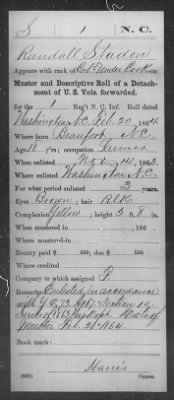 S 1 N. C.
Randall Staden
Appears with rank of Col. Under Cook on
Muster and Descriptive Roll of a Detachment
of U. S. Vols. forwarded.
for the 1 Reg't N. C. Inf. Roll dated
Washington, N.C. Feb. 20, 1864.
Where born Beaufort, N.C.
Age 18 y'rs; occupation Farmer
When enlisted 14, 1863.
Where enlisted Washington N.C.
For what period enlisted 3 years.
Eyes Brown; hair Blk
Complexion Yellow; height 5 ft. 8 in.
When mustered in , 186 .
Where mustered in
Bounty paid $ 100; due $ 100
Where credited
Company to which assigned
Remarks: Enlisted in accordance
with G.O. 73 Section 10
1863
Muster Feb. 20 1864
Book mark:
Harris
Copyist.